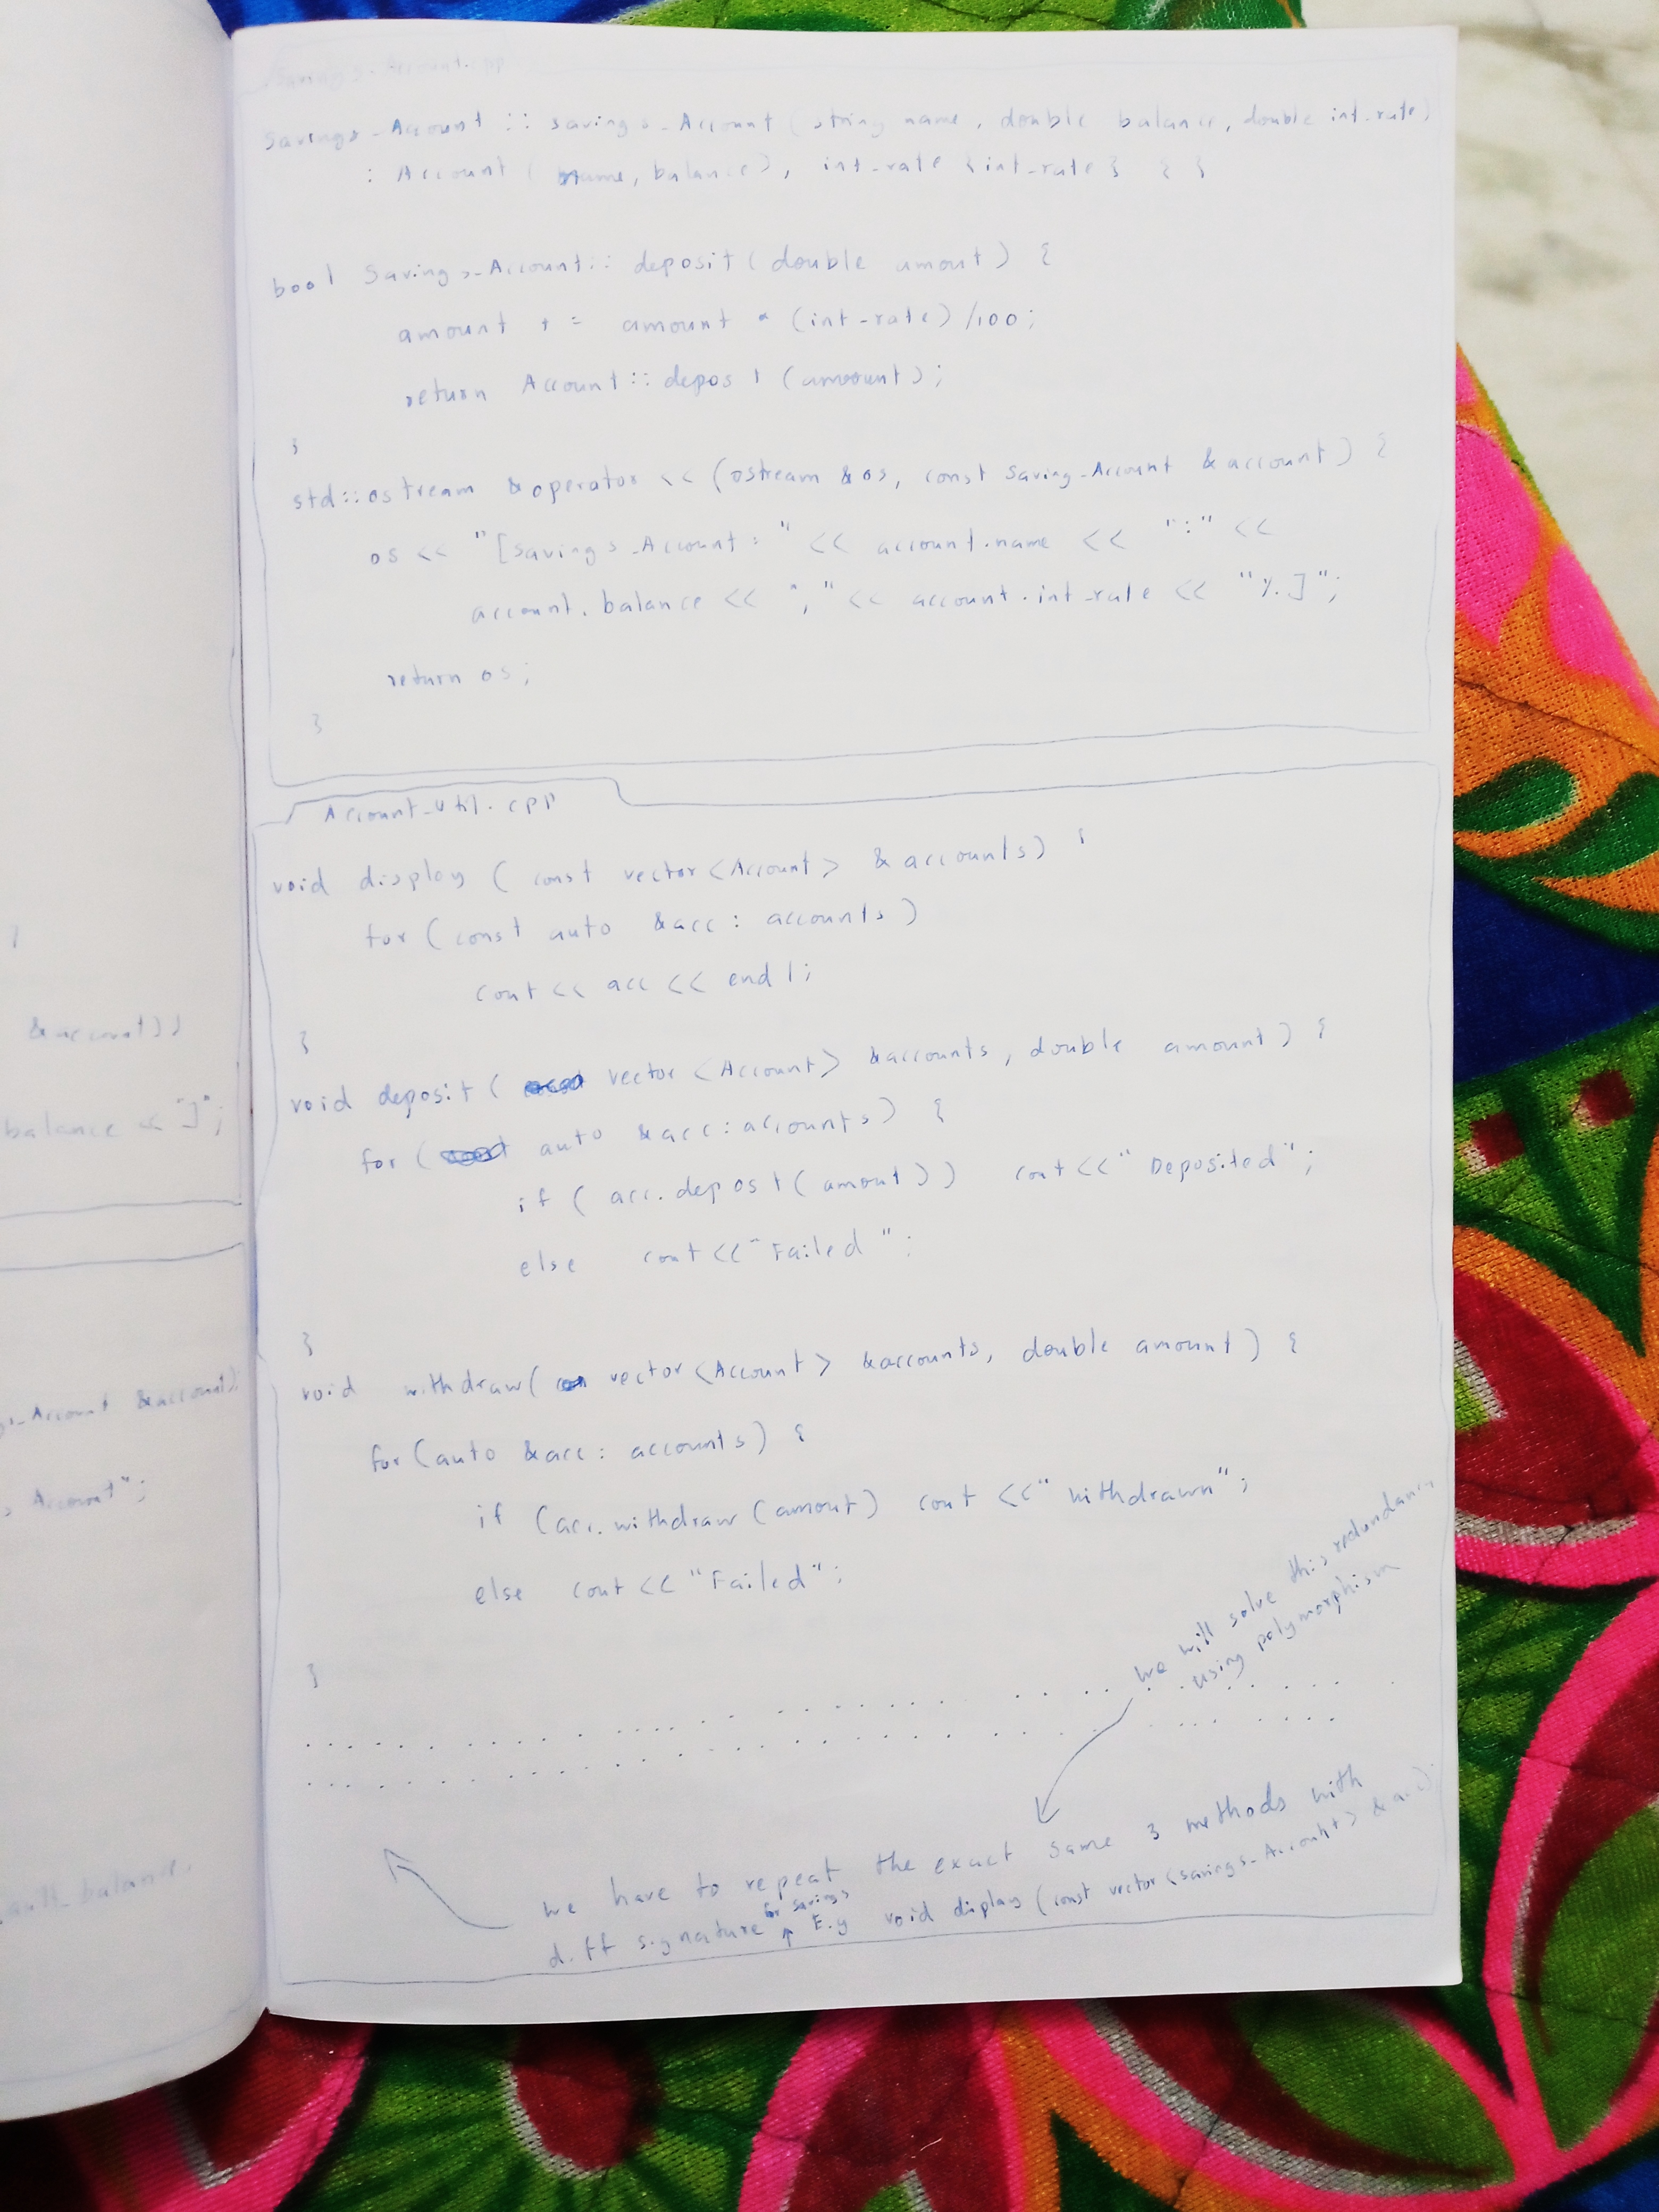 &account))
balance << "]";
Account &account)
Account";
balance,
Savings_Account.cpp
Savings_Account :: savings_Account ( string name, double balance, double int_rate)
: Account ( name, balance), int_rate {int_rate} { }
bool Savings_Account:: deposit ( double amount ) {
amount += amount * (int_rate) /100;
return Account:: deposit (amount);
}
std::ostream &operator << (ostream &os, const Saving_Account &account) {
os << "[Savings_Account: " << account.name << ":" <<
account. balance << "," << account.int_rate << "%]";
return os;
}
Account_Util.cpp
void display ( const vector<Account> &accounts) {
for (const auto &acc: accounts)
cout << acc << endl;
}
void deposit ( vector <Account> &accounts, double amount) {
for ( auto &acc: accounts) {
if ( acc.deposit ( amount )) cout << "Deposited";
else cout << "Failed ";
}
void withdraw ( vector<Account> &accounts, double amount) {
for (auto &acc: accounts) {
if (acc. withdraw (amount) cout << "withdrawn";
else cout << "Failed";
}
we will solve this redundancy
using polymorphism
we have to repeat the exact same 3 methods with
diff signature for savings E.g void display (const vector <savings_Account> &